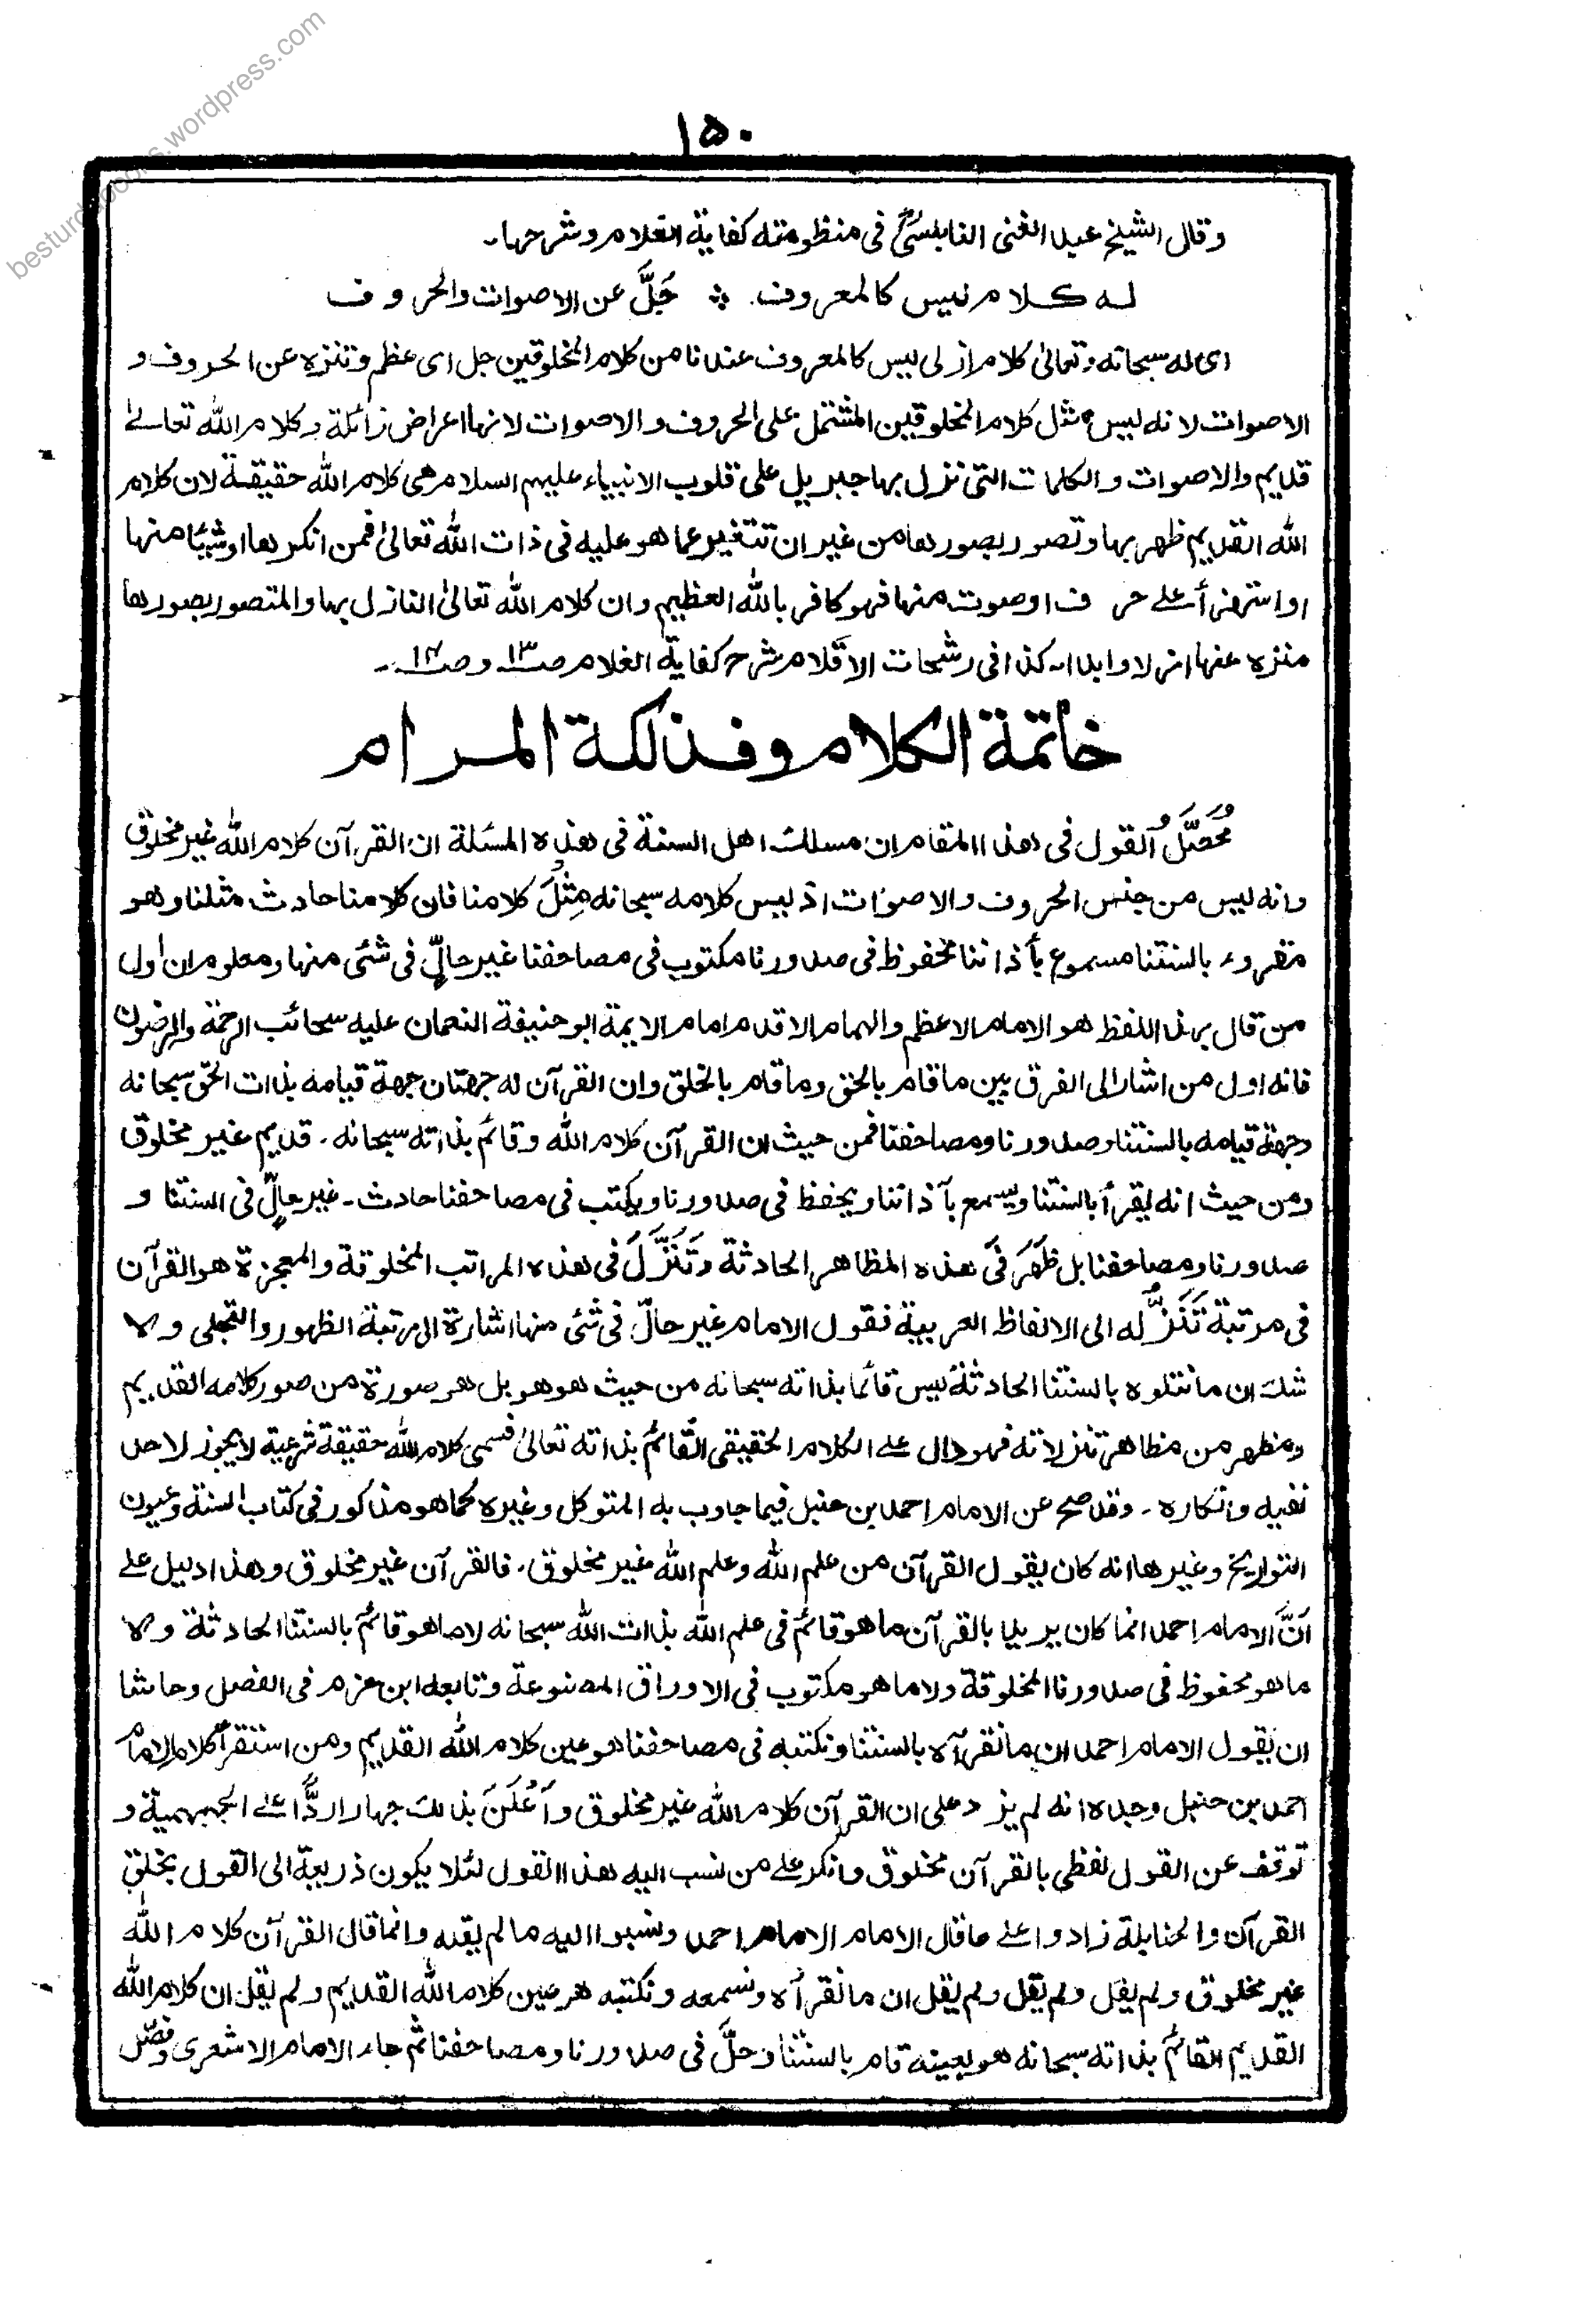 besturdubooks.wordpress.com
۱۵۰
وقال الشيخ عبد الغنى النابلسىؒ فى منظومته كفاية الغلام وشرحها۔
له كلام ليس كالمعروف ؞ جَلَّ عن الاصوات والحروف
اى له سبحانه وتعالىٰ كلام ازلى ليس كالمعروف عندنا من كلام المخلوقين جل اى عظم وتنزه عن الحروف و
الاصوات لانه ليس مثل كلام المخلوقين المشتمل على الحروف والاصوات لانها اعراض زائلة وكلام الله تعالىٰ
قديم والاصوات والكلمات التى نزل بها جبريل على قلوب الانبياء عليهم السلام هى كلام الله حقيقة لان كلام
الله القديم ظهر بها وتصور بصورها من غير ان تتغير عما هو عليه فى ذات الله تعالىٰ فمن انكرها او شيئا منها
او استهزأ علے حرف او صوت منها فهو كافر بالله العظيم وان كلام الله تعالىٰ النازل بها والمتصور بصورها
منزه عنها ازلا وابدا اﻫ كذا فى رشحات الاقلام شرح كفاية الغلام صـ۱۳ وصـ۱۴۔
خاتمة الكلام وفذلكة المرام
مُحَصَّلُ القول فى هذا المقام ان مسلك اهل السنة فى هذه المسئلة ان القرآن كلام الله غير مخلوق
وانه ليس من جنس الحروف والاصوات اذ ليس كلامه سبحانه مِثْلَ كلامنا فان كلامنا حادث مثلنا وهو
مقروء بالسنتنا مسموع بأذاننا محفوظ فى صدورنا مكتوب فى مصاحفنا غير حالٍّ فى شئ منها ومعلوم ان اول
من قال بهذا اللفظ هو الامام الاعظم والهمام الاقدم امام الايمة ابو حنيفة النعمان عليه سحائب الرحمة والرضوان
فانه اول من اشار الى الفرق بين ما قام بالحق وما قام بالخلق وان القرآن له جهتان جهة قيامه بذات الحق سبحانه
وجهة قيامه بالسنتنا وصدورنا ومصاحفنا فمن حيث ان القرآن كلام الله وقائم بذاته سبحانه۔ قديم غير مخلوق
ومن حيث انه يقرأ بالسنتنا ويسمع بآذاننا ويحفظ فى صدورنا ويكتب فى مصاحفنا حادث۔ غير حالٍّ فى السنتنا و
صدورنا ومصاحفنا بل ظَهَرَ فى هذه المظاهر الحادثة وَتَنَزَّلَ فى هذه المراتب المخلوقة والمعجزة هو القرآن
فى مرتبة تَنَزُّله الى الالفاظ العربية فقول الامام غير حالّ فى شئ منها اشارة الى مرتبة الظهور والتجلى ولا
شك ان ما نتلوه بالسنتنا الحادثة ليس قائما بذاته سبحانه من حيث هو هو بل هو صورة من صور كلامه القديم
ومظهر من مظاهر تنزلاته فهو دال علے الكلام الحقيقى القائم بذاته تعالىٰ فسمى كلام الله حقيقة شرعية لا يجوز لاحد
نفيه وانكاره۔ وقد صح عن الامام احمد بن حنبل فيما جاوب به المتوكل وغيره كما هو مذكور فى كتاب السنة وعيون
التواريخ وغيرها انه كان يقول القرآن من علم الله وعلم الله غير مخلوق۔ فالقرآن غير مخلوق وهذا دليل علے
اَنَّ الامام احمد انما كان يريد بالقرآن ما هو قائم فى علم الله بذات الله سبحانه لا ما هو قائم بالسنتنا الحادثة ولا
ما هو محفوظ فى صدورنا المخلوقة ولا ما هو مكتوب فى الاوراق المصنوعة وتابعه ابن حزم فى الفصل وحاشا
ان يقول الامام احمد ان ما نقرآه بالسنتنا ونكتبه فى مصاحفنا هو عين كلام الله القديم ومن استقرأ كلام الامام
احمد بن حنبل وجده انه لم يزد على ان القرآن كلام الله غير مخلوق وَاَعْلَنَ بذلك جهارا ردًّا علے الجهمية و
توقف عن القول لفظى بالقرآن مخلوق وانكر على من نسب اليه هذا القول لئلا يكون ذريعة الى القول بخلق
القرآن والحنابلة زادوا علے ما قال الامام الامام احمد ونسبوا اليه ما لم يقله وانما قال القرآن كلام الله
غير مخلوق ولم يقل ولم يقل ولم يقل ان ما نقرأه ونسمعه ونكتبه هو عين كلام الله القديم ولم يقل ان كلام الله
القديم القائم بذاته سبحانه هو بعينه قام بالسنتنا وحلَّ فى صدورنا ومصاحفنا ثم جاء الامام الاشعرى وفصّل